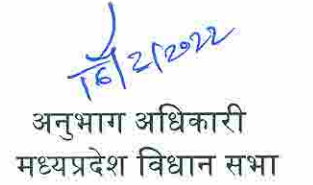 16/2/2022
अनुभाग अधिकारी
मध्यप्रदेश विधान सभा